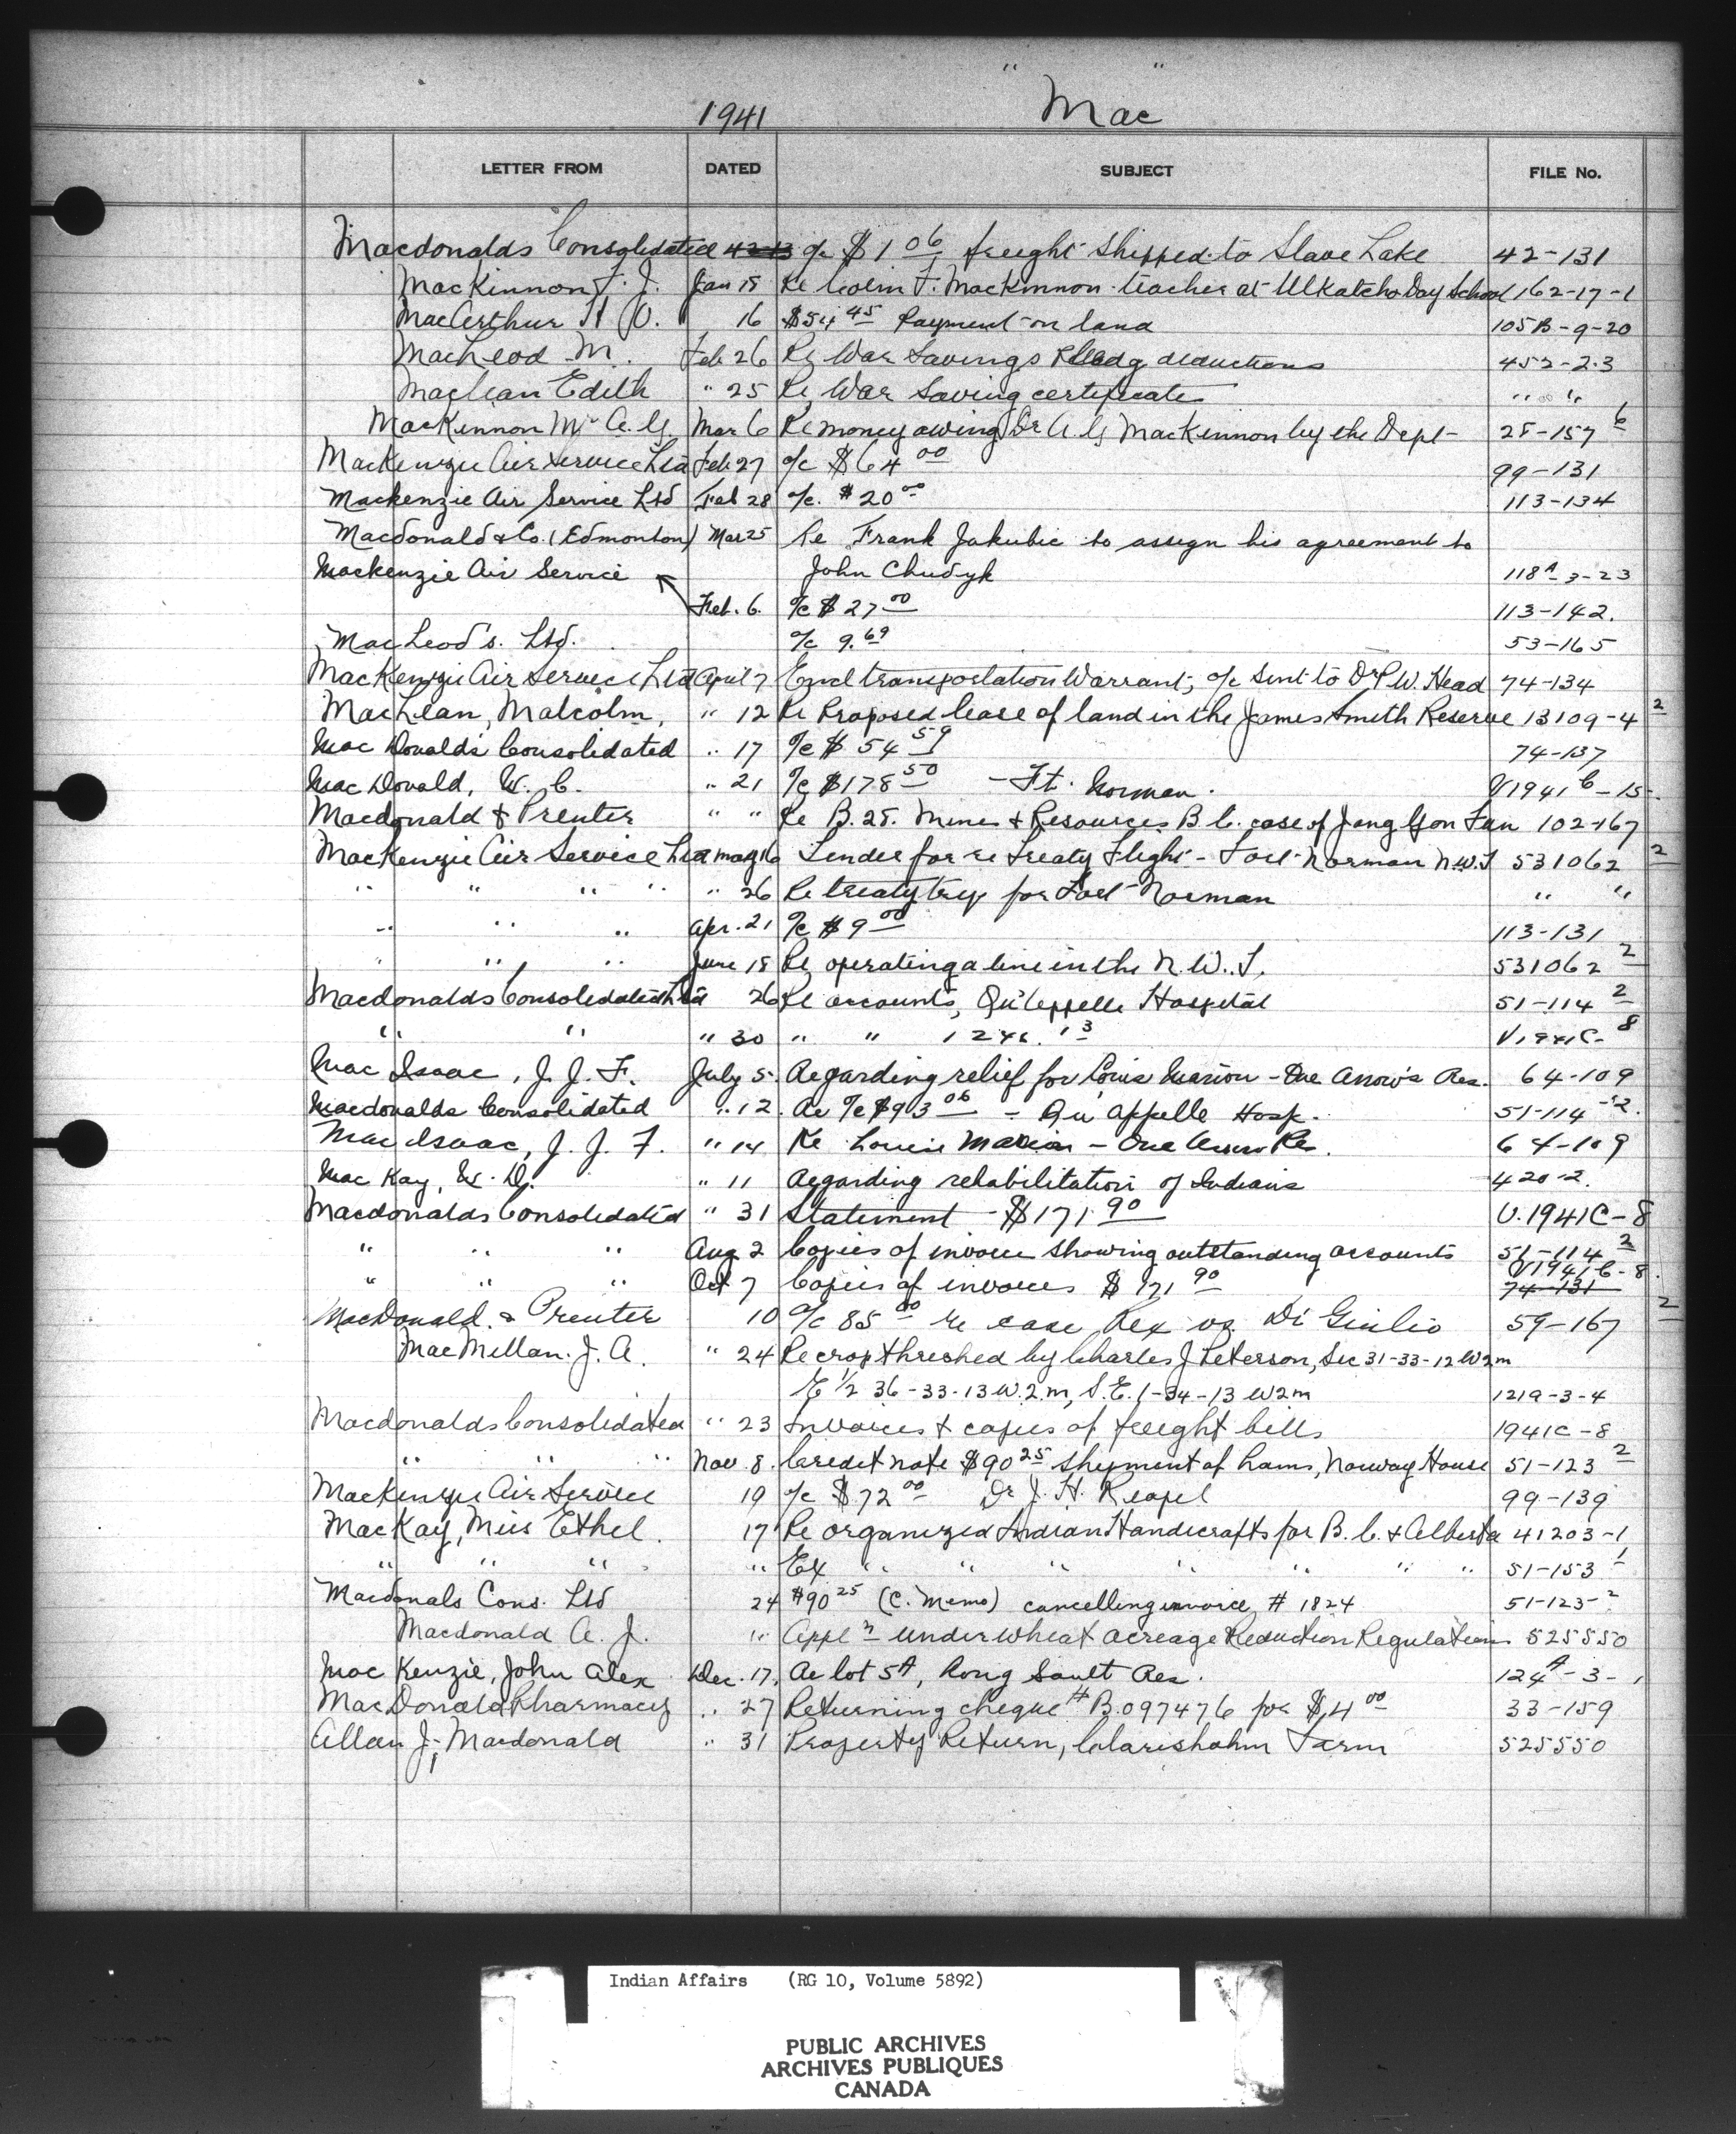 1941 " Mac "
LETTER FROM DATED SUBJECT FILE No.
Macdonalds Consolidated 42-13 a/c $1 06 freight shipped to Slave Lake 42-131
MacKinnon J. J. Jan 18 Re Colin F. MacKinnon teacher at Ulkatcho Day School 162-17-1
MacArthur 16 $54 45 Payment on land 105B-9-20
MacLeod M. Feb 26 Re War Savings deductions 452-2-3
Maclean Edith " 25 Re War Saving certificates " "
MacKinnon A. G. Mar 6 Re money owing Dr A. G. MacKinnon by the Dept 28-157 6
MacKenzie Air Service Ltd Feb 27 a/c $64 00 99-131
Mackenzie Air Service Ltd Feb 28 a/c. $20 00 113-134
Macdonald & Co. (Edmonton) Mar 25 Re Frank Jakubic to assign his agreement to
Mackenzie Air Service John Chudyk 118A-3-23
Feb. 6. a/c $27 00 113-142.
MacLeod's. Ltd. a/c 9.69 53-165
MacKenzie Air Service Ltd April 7 Encl transportation Warrant, a/c sent to Dr P.W. Head 74-134
MacLean, Malcolm, " 12 Re Proposed lease of land in the James Smith Reserve 13109-4 2
Mac Donalds Consolidated " 17 a/c $54 59 74-137
Mac Donald, W. C. " 21 a/c $178 50 - Ft. Norman. V1941C-15.
Macdonald & Prenter " " Re B.25. Mines & Resources B.C. case of Jang Yon Fan 102-167
MacKenzie Air Service Ltd May 16 Tender for re Treaty Flight - Fort Norman N.W.T 531062 2
" " " " " 26 Re treaty trip for Fort Norman " "
" " " Apr. 21 a/c $9 00 113-131
" " " June 18 Re operating a line in the N.W.T. 531062 2
Macdonalds Consolidated Ltd 26 Re accounts, Qu'Appelle Hospital 51-114 2
" " " 30 " " V1941C-8
Mac Isaac, J. J. F. July 5. Regarding relief for Louis Marion - One Arrow's Res. 64-109
Macdonalds Consolidated " 12. Re a/c $93 06 - Qu'Appelle Hosp. 51-114-2.
Mac Isaac, J. J. F. " 14 Re Louis Marion - One Arrow Res. 64-109
Mac Kay, W. D. " 11 Regarding rehabilitation of Indians 420-2.
Macdonalds Consolidated " 31 Statement - $171 90 V.1941C-8
" " " Aug. 2 Copies of invoice showing outstanding accounts 51-114 2
" " " Oct 7 Copies of invoices $171 90 V1941C-8. 74-131
MacDonald & Prenter 10 a/c 85 00 re case Rex vs. Di Giulio 59-167 2
MacMillan. J. A. " 24 Re crop threshed by Charles J Peterson, Sec 31-33-12 W2m
E 1/2 36-33-13 W.2.m, S.E. 1-34-13 W2m 121A-3-4
Macdonalds Consolidated " 23 Invoices & copies of freight bills 1941C-8
" " " Nov. 8. Credit note $90 25 shipment of hams, Norway House 51-123 2
Mackenzie Air Service 19 a/c $72 00 Dr J. H. Riopel 99-139
MacKay, Miss Ethel. 17 Re organized Indian Handicrafts for B.C. & Alberta 41203-1
" " " " Ex " " " " " " " 51-153 1
Macdonals Cons. Ltd 24 $90 25 (C. Memo) cancelling invoice # 1824 51-123-2
Macdonald A. J. " Appl n under Wheat Acreage Reduction Regulations 525550
Mac Kenzie, John Alex Dec. 17. Re lot 5A, Rong Sault Res. 124A-3-1
MacDonald Pharmacy " 27 Returning cheque # B.097476 for $4 00 33-159
Allan J. Macdonald " 31 Property Return, Claresholm Farm 525550
Indian Affairs (RG 10, Volume 5892)
PUBLIC ARCHIVES
ARCHIVES PUBLIQUES
CANADA